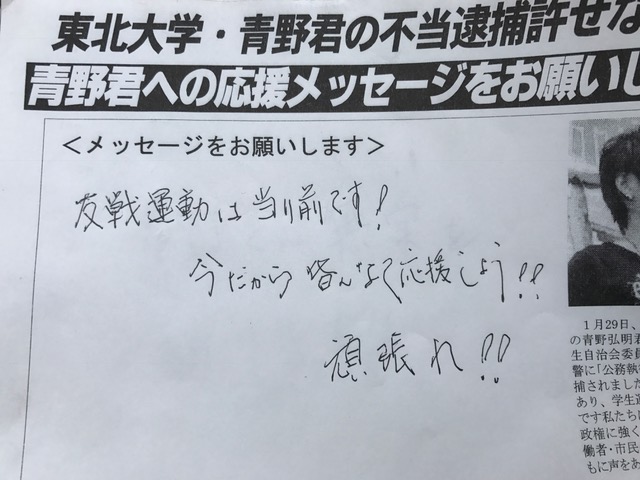 東北大学・青野君の不当逮捕許せな
青野君への応援メッセージをお願いし
＜メッセージをお願いします＞
反戦運動は当り前です!
今だから皆んなで応援しよう!!
頑張れ!!
1月29日、
の青野弘明君
生自治会委員
警に「公務執
捕されました
あり、学生運
です私たちは
政権に強く
働者・市民
もに声をあ